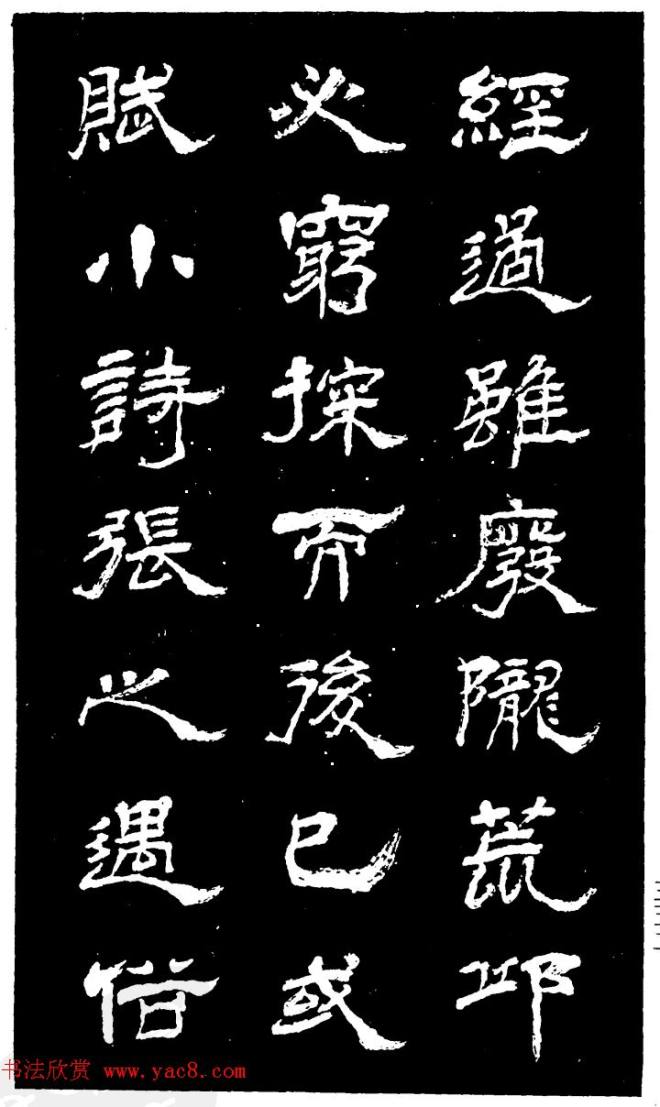 經過雖廢隴荒邱
必窮探而後已或
賦小詩張之遇俗
书法欣赏 www.yac8.com